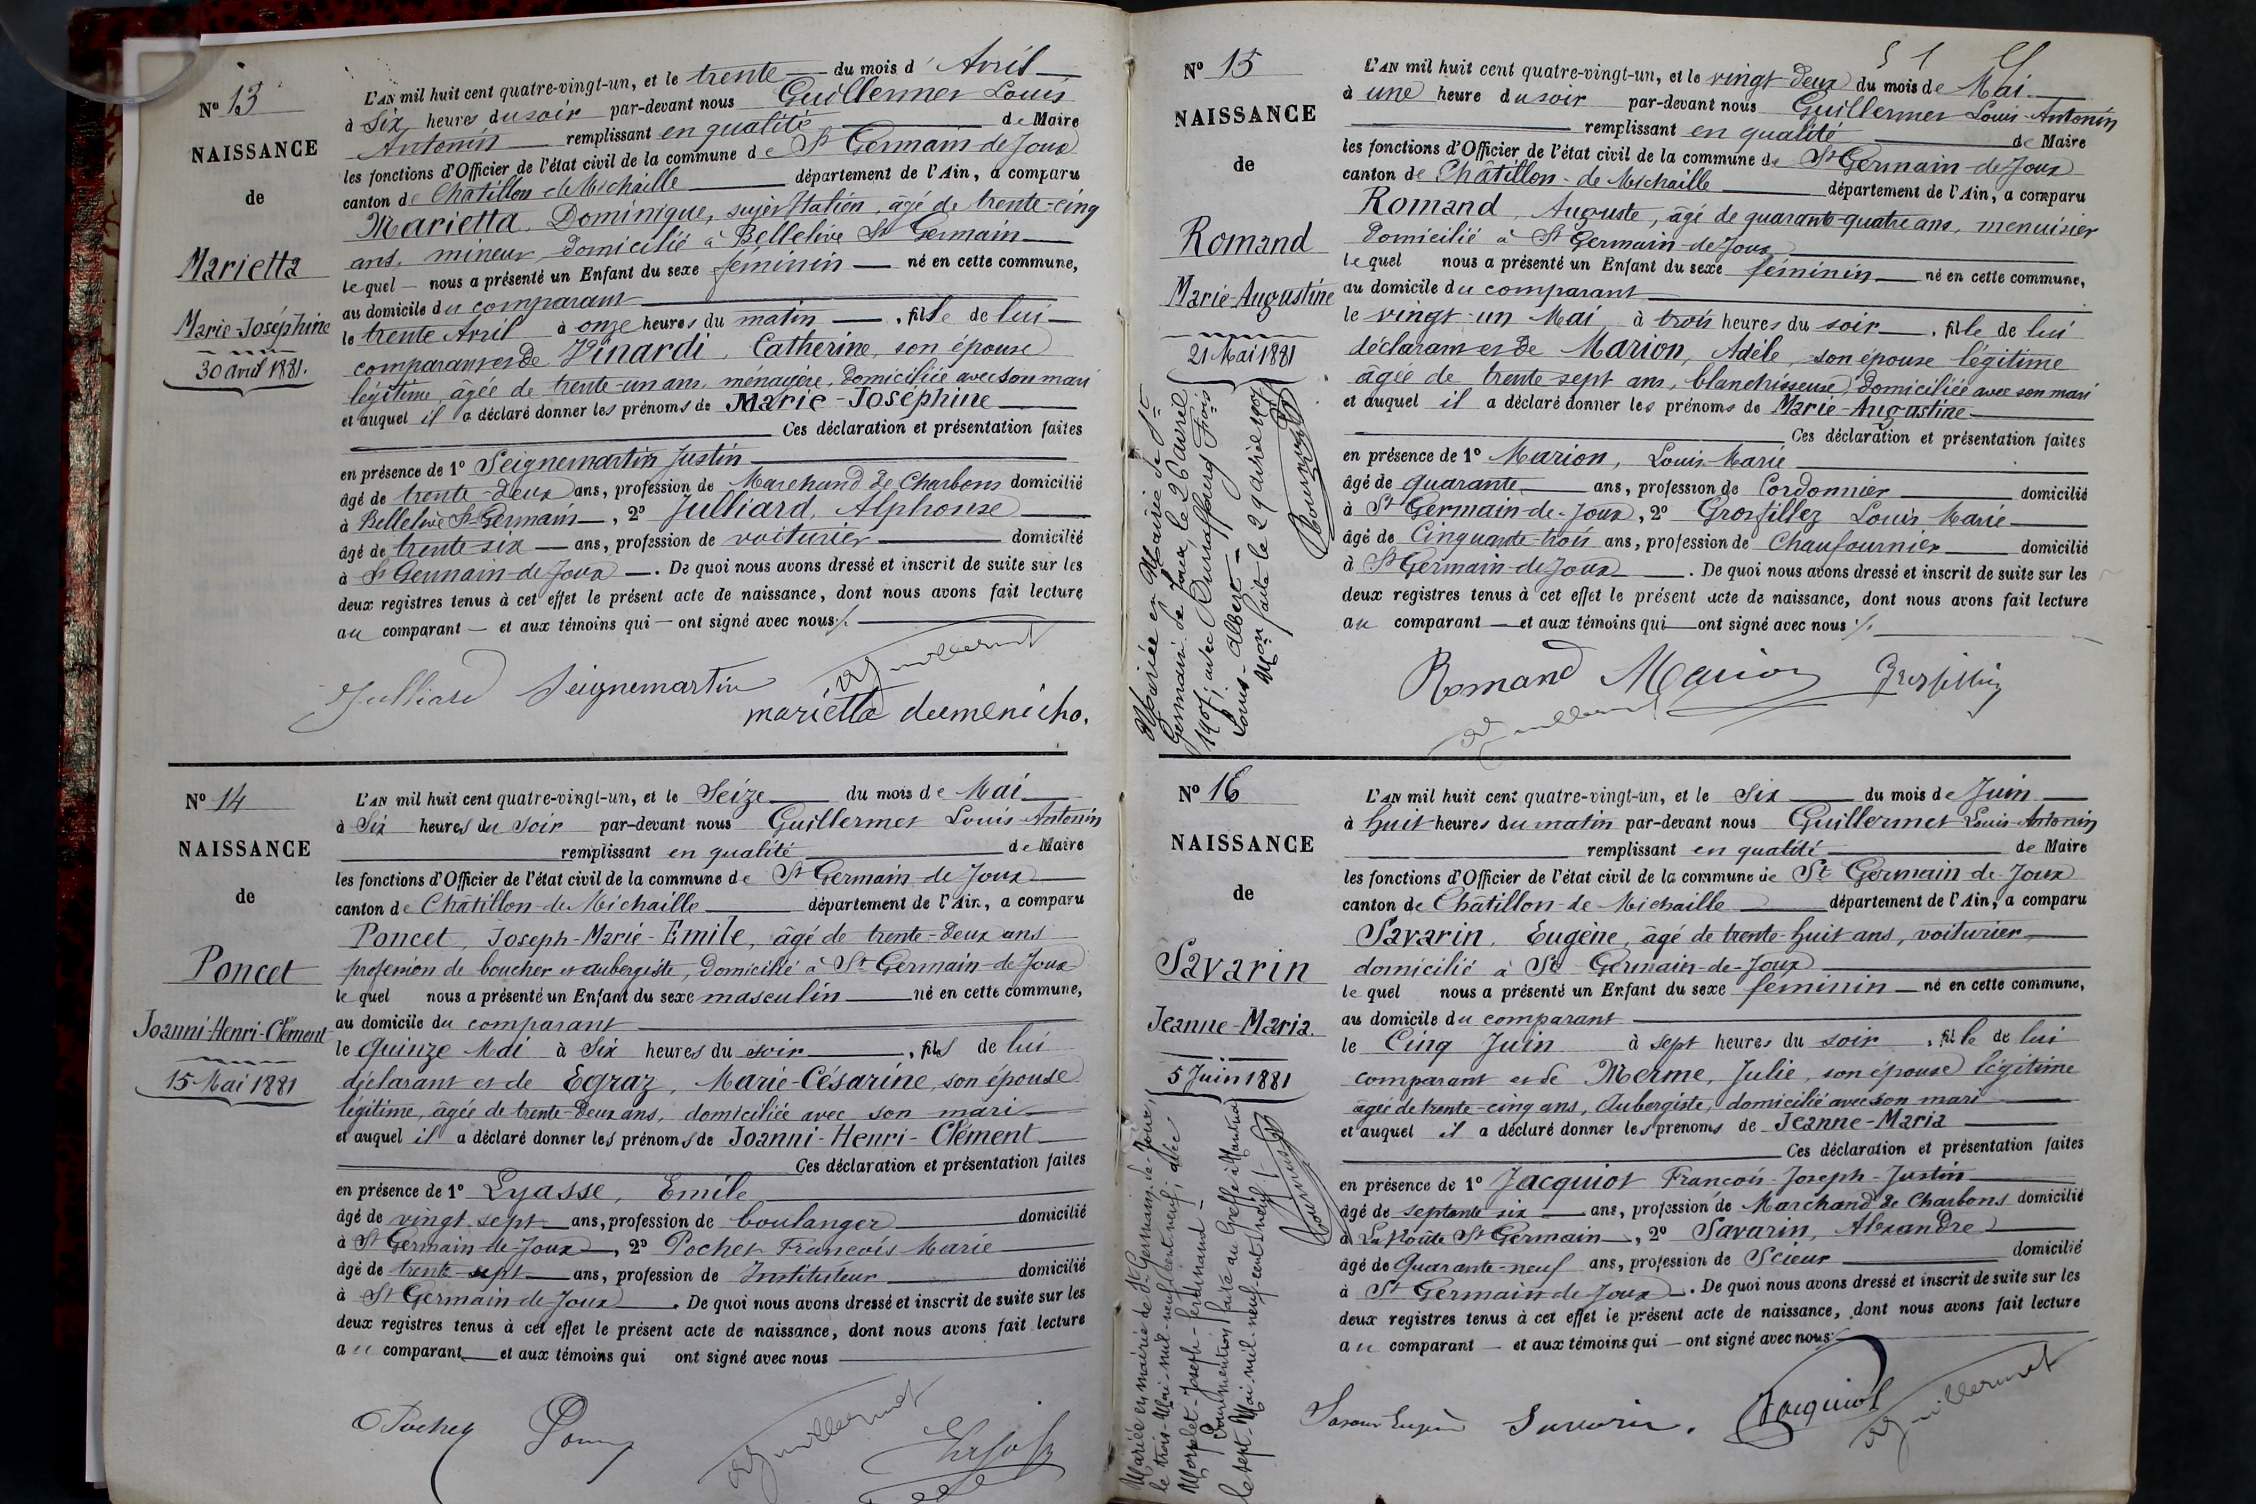 Nº 13
NAISSANCE
de
Marietta
Marie-Joséphine
30 avril 1881.
L'AN mil huit cent quatre-vingt-un, et le trente du mois d'Avril
à Six heures du soir par-devant nous Guillermet Louis
Antonin remplissant en qualité de Maire
les fonctions d'Officier de l'état civil de la commune de St Germain-de-Joux
canton de Châtillon de Michaille département de l'Ain, a comparu
Marietta, Dominique, sujet Italien, âgé de trente-cinq
ans, mineur, domicilié à Bellelive St Germain
lequel nous a présenté un Enfant du sexe féminin né en cette commune,
au domicile du comparant
le trente Avril à onze heures du matin, fille de lui
comparant et de Vinardi, Catherine, son épouse
légitime, âgée de trente-un ans, ménagère, domiciliée avec son mari
et auquel il a déclaré donner les prénoms de Marie-Joséphine
Ces déclaration et présentation faites
en présence de 1º Seignemartin Justin
âgé de trente-deux ans, profession de Marchand de Charbons domicilié
à Bellelive St-Germain, 2º Julliard, Alphonse
âgé de trente six ans, profession de voiturier domicilié
à St Germain-de-Joux. De quoi nous avons dressé et inscrit de suite sur les
deux registres tenus à cet effet le présent acte de naissance, dont nous avons fait lecture
au comparant et aux témoins qui ont signé avec nous ./.
Julliard Seignemartin Guillermet
marietta dumenicho.
Nº 14
NAISSANCE
de
Poncet
Joanni-Henri-Clément
15 Mai 1881
L'AN mil huit cent quatre-vingt-un, et le Seize du mois de Mai
à Six heures du soir par-devant nous Guillermet Louis-Antonin
remplissant en qualité de Maire
les fonctions d'Officier de l'état civil de la commune de St Germain de Joux
canton de Châtillon-de Michaille département de l'Ain, a comparu
Poncet, Joseph-Marie-Emile, âgé de trente-deux ans
profession de boucher et aubergiste, domicilié à St Germain-de-Joux
lequel nous a présenté un Enfant du sexe masculin né en cette commune,
au domicile du comparant
le quinze Mai à Six heures du soir, fils de lui
déclarant et de Egraz, Marie-Césarine, son épouse
légitime, âgée de trente-deux ans, domiciliée avec son mari
et auquel il a déclaré donner les prénoms de Joanni-Henri-Clément
Ces déclaration et présentation faites
en présence de 1º Lyasse, Emile
âgé de vingt sept ans, profession de boulanger domicilié
à St Germain-de-Joux, 2º Pochet François Marie
âgé de trente-sept ans, profession de Instituteur domicilié
à St Germain-de-Joux. De quoi nous avons dressé et inscrit de suite sur les
deux registres tenus à cet effet le présent acte de naissance, dont nous avons fait lecture
au comparant et aux témoins qui ont signé avec nous
Pochet Guillermet
Nº 15
NAISSANCE
de
Romand
Marie-Augustine
21 Mai 1881
Mariée en Mairie de St
Germain de Joux, le 26 avril
1907; avec
Louis-Albert
Mon faite le 29 avril 1907
L'AN mil huit cent quatre-vingt-un, et le vingt-deux du mois de Mai
à une heure du soir par-devant nous Guillermet Louis-Antonin
remplissant en qualité de Maire
les fonctions d'Officier de l'état civil de la commune de St Germain-de-Joux
canton de Châtillon-de Michaille département de l'Ain, a comparu
Romand, Auguste, âgé de quarante-quatre ans, menuisier
domicilié à St Germain-de-Joux
lequel nous a présenté un Enfant du sexe féminin né en cette commune,
au domicile du comparant
le vingt-un Mai à trois heures du soir, fille de lui
déclarant et de Marion, Adèle, son épouse légitime
âgée de trente sept ans, blanchisseuse, domiciliée avec son mari
et auquel il a déclaré donner les prénoms de Marie-Augustine
Ces déclaration et présentation faites
en présence de 1º Marion, Louis Marie
âgé de quarante ans, profession de Cordonnier domicilié
à St Germain-de-Joux, 2º Grosfillez Louis Marie
âgé de Cinquante-trois ans, profession de Chaufournier domicilié
à St Germain-de-Joux. De quoi nous avons dressé et inscrit de suite sur les
deux registres tenus à cet effet le présent acte de naissance, dont nous avons fait lecture
au comparant et aux témoins qui ont signé avec nous ./.
Romand Marion
Guillermet
Nº 16
NAISSANCE
de
Savarin
Jeanne-Maria.
5 Juin 1881
Mariée en mairie de St Germain-de-Joux,
le trois Mai mil-neuf-cent-neuf; avec
Joseph-ferdinand
Pour mention faite au Greffe à Nantua
le sept Mai mil-neuf-cent-neuf
L'AN mil huit cent quatre-vingt-un, et le Six du mois de Juin
à huit heures du matin par-devant nous Guillermet Louis-Antonin
remplissant en qualité de Maire
les fonctions d'Officier de l'état civil de la commune de St Germain-de-Joux
canton de Châtillon-de Michaille département de l'Ain, a comparu
Savarin, Eugène, âgé de trente-huit ans, voiturier
domicilié à St Germain-de-Joux
lequel nous a présenté un Enfant du sexe féminin né en cette commune,
au domicile du comparant
le Cinq Juin à sept heures du soir, fille de lui
comparant et de Merme, Julie, son épouse légitime
âgée de trente-cinq ans, Aubergiste, domicilié avec son mari
et auquel il a déclaré donner les prénoms de Jeanne-Maria
Ces déclaration et présentation faites
en présence de 1º Jacquiot François-Joseph-Justin
âgé de septante six ans, profession de Marchand de Charbons domicilié
à La Voûte St Germain, 2º Savarin, Alexandre
âgé de Quarante-neuf ans, profession de Scieur domicilié
à St Germain de Joux. De quoi nous avons dressé et inscrit de suite sur les
deux registres tenus à cet effet le présent acte de naissance, dont nous avons fait lecture
au comparant et aux témoins qui ont signé avec nous
Savarin Eugène Savarin. Jacquiot Guillermet